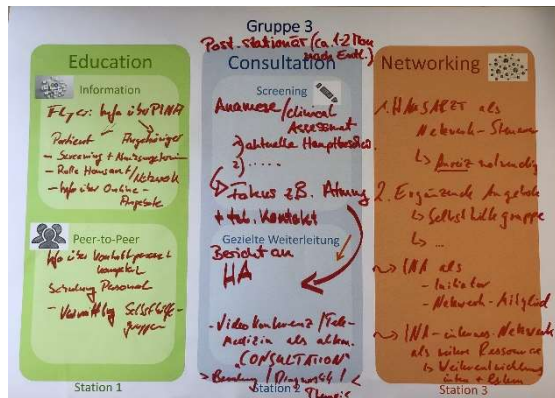 Gruppe 3
Post-stationär (ca. 1-2 Mon
nach Entl.)
Education
Information
Flyer: Info über PINA
Patient Angehöriger
- Screening +
- Rolle Hausarzt/Netzwerk
- Info über Online-
Angebote
Peer-to-Peer
Info über
Schulung Personal
- Vermittlung Selbsthilfe-
gruppen
Station 1
Consultation
Screening
Anamnese/clinical
Assessment
1) aktuelle Hauptbeschw.
2) .....
Fokus z.B. Atmung
+ tel. Kontakt
Gezielte Weiterleitung
Bericht an
HA
- Videokonferenz/Tele-
Medizin als altern.
"CONSULTATION"
> Beratung / Diagnostik / <
Therapie
Station 2
Networking
1. HAUSARZT als
Netzwerk-Steuerer
↳ Anreiz notwendig
2. Ergänzende Angebote
↳ Selbsthilfegruppe
↳ ...
~> INA als
- Initiator
- Netzwerk-Mitglied
~> INA-internes Netzwerk
als Ressource
intern + extern
Station 3